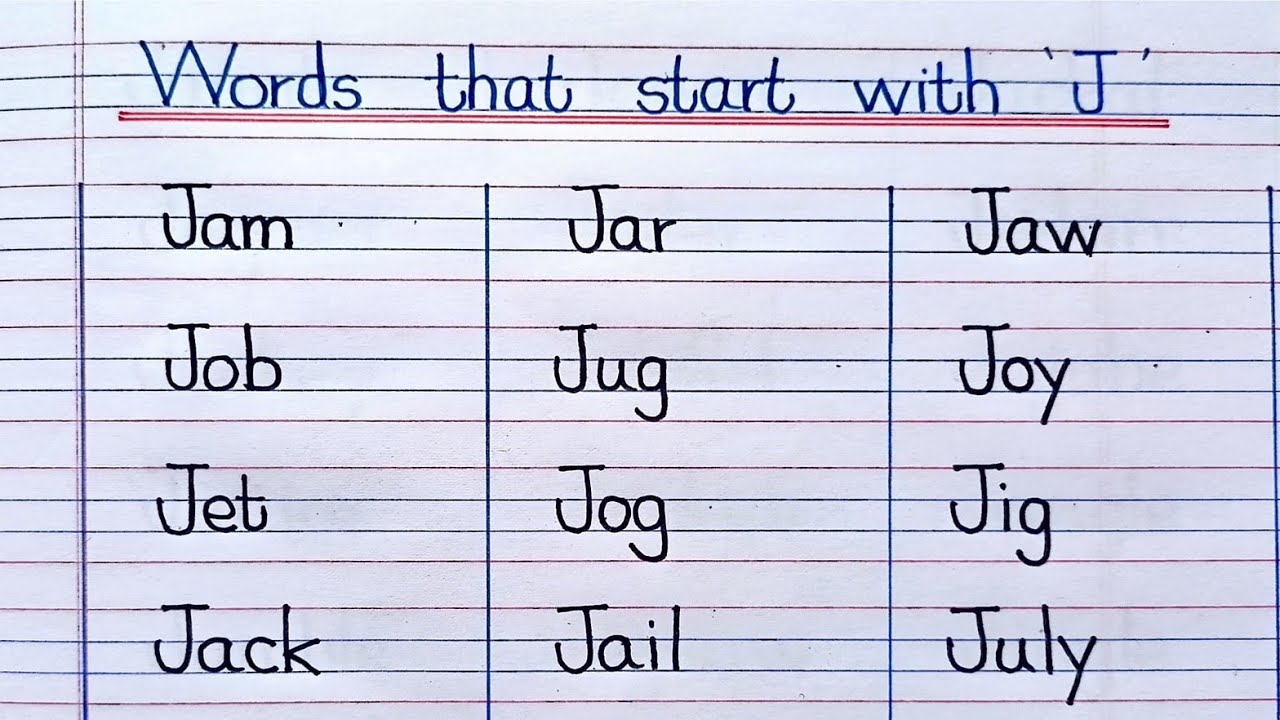 Words that start with 'J'
Jam Jar Jaw
Job Jug Joy
Jet Jog Jig
Jack Jail July